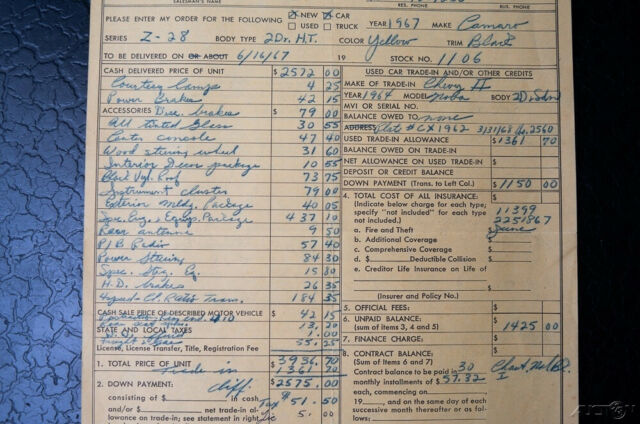 SALESMAN'S NAME RES. PHONE BUS. PHONE
PLEASE ENTER MY ORDER FOR THE FOLLOWING NEW CAR YEAR 1967 MAKE Camaro
USED TRUCK
SERIES Z-28 BODY TYPE 2Dr. H.T. COLOR Yellow TRIM Black
TO BE DELIVERED ON OR ABOUT 6/16/67 19 STOCK NO. 1106
CASH DELIVERED PRICE OF UNIT $ 2572 00
Courtesy Lamps 4 25
Power Brakes 42 15
ACCESSORIES Disc. brakes $ 79 00
All tinted Glass 30 55
Center console 47 40
Wood steering wheel 31 60
Interior Decor package 10 55
Black Vyl. Roof 73 75
Instrument cluster 79 00
Exterior Mldg. Package 40 05
Spec. Eng. & Equip. Package 437 10
Rear antenna 9 50
P/B Radio 57 40
Power Steering 84 30
Spec. Strg. Eq. 15 80
H.D. brakes 26 35
184 35
CASH SALE PRICE OF DESCRIBED MOTOR VEHICLE $ 42 15
13.20
STATE AND LOCAL TAXES 1.00
55.25
License, License Transfer, Title, Registration Fee
1. TOTAL PRICE OF UNIT $ 3936.70
Trade in 1361 70
2. DOWN PAYMENT: diff. $ 2575.00
consisting of $ in cash Tax $ 51.50
and/or $ net trade-in al-
lowance on trade-in; see statement in right Lic 5.00
USED CAR TRADE-IN AND/OR OTHER CREDITS
MAKE OF TRADE-IN Chevy II
YEAR 1964 MODEL Nova BODY 2D. Sdn
MVI OR SERIAL NO.
BALANCE OWED TO none
ADDRESS Plat # CX1962 3/31/68 2560
USED TRADE-IN ALLOWANCE $ 1361 70
BALANCE OWED ON TRADE-IN
NET ALLOWANCE ON USED TRADE-IN $
DEPOSIT OR CREDIT BALANCE
DOWN PAYMENT (Trans. to Left Col.) $ 1150 00
4. TOTAL COST OF ALL INSURANCE:
(Indicate below charge for each type;
specify "not included" for each type
not included.) 11399
2251867
a. Fire and Theft $ June
b. Additional Coverage $
c. Comprehensive Coverage $
d. $ Deductible Collision $
e. Creditor Life Insurance on Life of
$
(Insurer and Policy No.)
5. OFFICIAL FEES: $
6. UNPAID BALANCE: $ 1425 00
(sum of items 3, 4 and 5)
7. FINANCE CHARGE: $
8. CONTRACT BALANCE:
(Sum of Items 6 and 7) $
Contract balance to be paid in 30
monthly installments of $ 57.32
each, commencing on
19 , and on the same day of each
successive month thereafter or as fol-
lows: